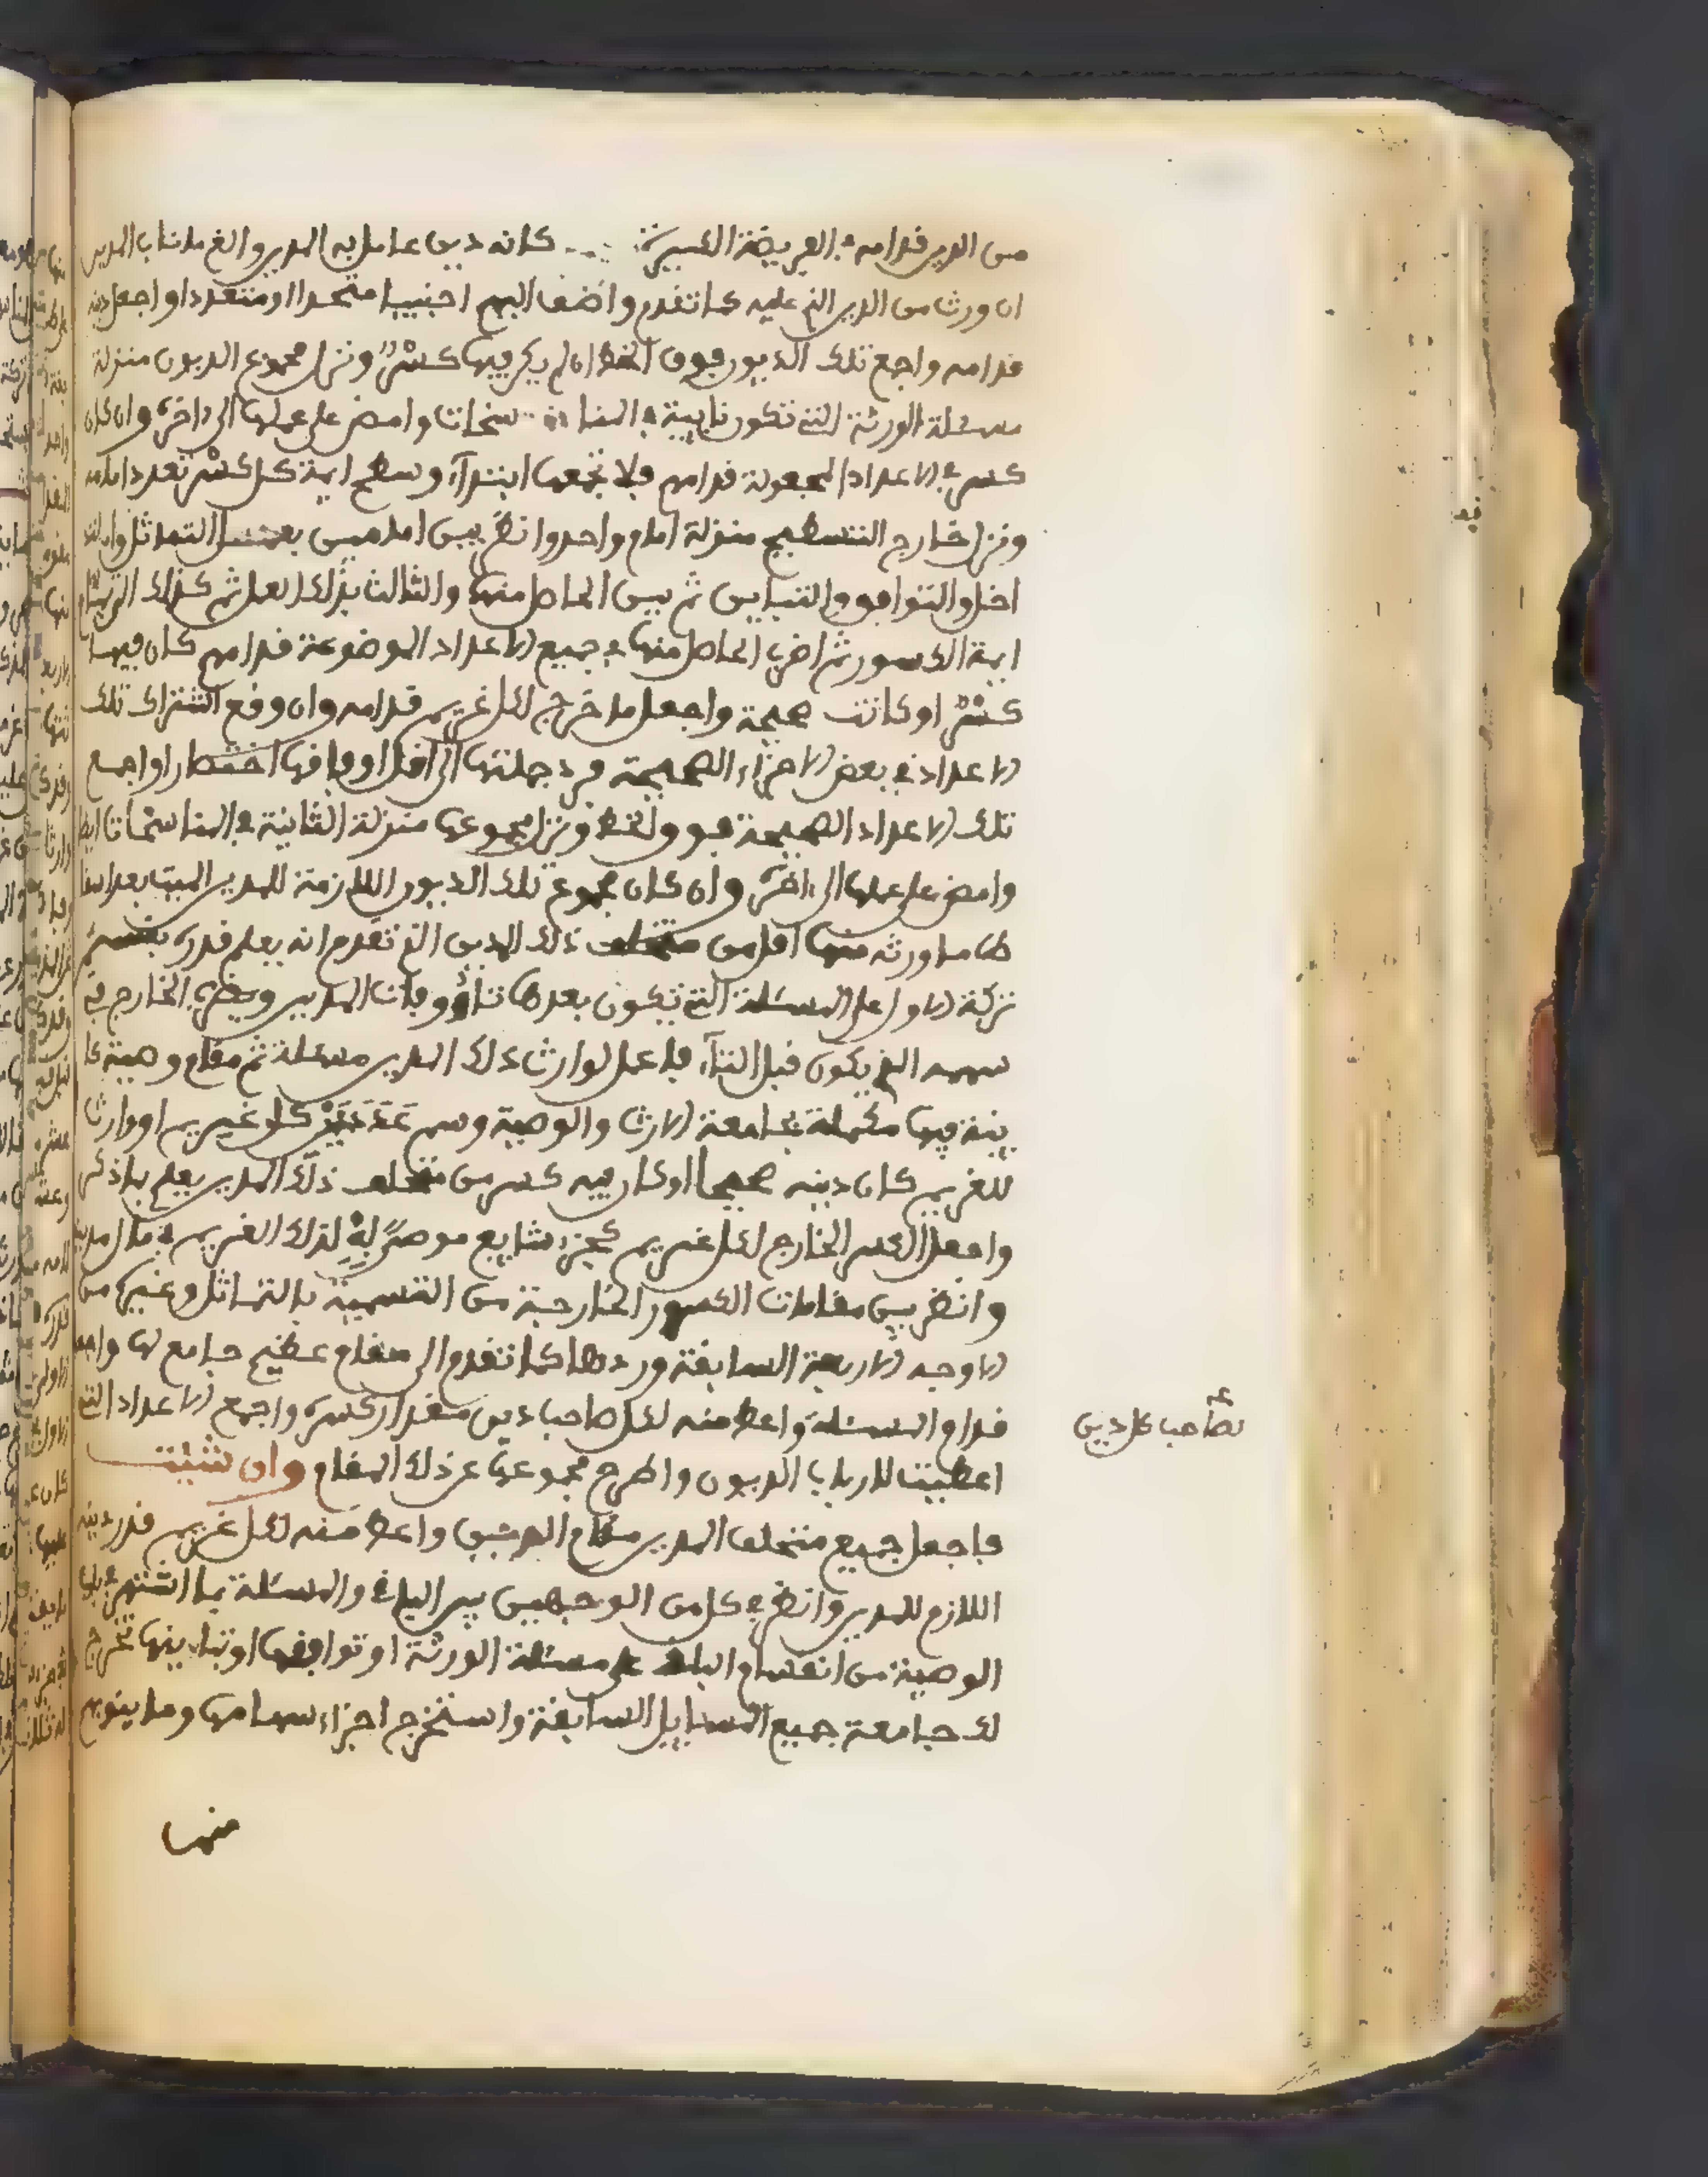 من الدين قدامه في الفريضة الكبيرة كانه دين عامل به المدين والغ ما ناب المدين
ان ورث من الدين الذي عليه كما تقدم واضف اليهم اجنبيا متحدا او متعددا واجعل دينه
قدامه واجمع تلك الديون فوق الخط ان لم يكن فيها كسر ونزل مجموع الديون منزلة
مسئلة الورثة التي تكون نايبة في المنا سخات وامض على عملها الى ءاخره وان كان
كسر في الاعداد المجعولة قدامهم فلا تجمعها ابتداء وسطح ايمة كل كسر تعدد امامه
ونزل خارج التسطيح منزلة امام واحد وانظر بين امامين بعد التماثل والتد
اخل والتوافق والتباين ثم بين الحاصل منها والثالث بذلك العمل ثم كذلك الى تمام
ايمة الكسور ثم اضرب الحاصل منها في جميع الاعداد الموضوعة قدامهم كان فيها
كسر او كانت صحيحة واجعل ما خرج لكل غريم قدامه وان وقع اشتراك تلك
الاعداد في بعض الاجزاء الصحيحة فرد جملتها الى اقل اوفاقها اختصارا واجمع
تلك الاعداد الصحيحة فوق الخط ونزل مجموعها منزلة الثانية في المناسخات ايضا
وامض على عملها الى ءاخره وان كان مجموع تلك الديون اللازمة للمدين الميت بعد اسقا
ط ما ورثه منها اقل من متخلف ذلك المدين الذي تقدم انه يعلم قدره بقسم
تركة الاول على المسئلة التي تكون بعدها تاء ووفات المدين ويضرب الخارج في
سهمه الذي يكون قبل التاء فاعمل لوارث ذلك المدين مسئلة ثم مقام وصية كا
ينة فيها مكملة بجامعة الارث والوصية وسم عدد دين كل غريم او وارث
للغريم كان دينه صحيحا او كان فيه كسر من متخلف ذلك المدين يعلم بما ذكر
واجعل الكسر الخارج لكل غريم كجزء شايع موصى له به لذلك الغريم في مال المدين
وانظر بين مقامات الكسور الخارجة من التسمية بالتماثل وغيره من
الاوجه الاربعة السابقة وردها كما تقدم الى مقام عظيم جامع لها واجعله
قدام المسئلة واعط منه لكل صاحب دين مقدار كسره واجمع الاعداد التي
لصاحب كل دين
اعطيت لارباب الديون واطرح مجموعها عن ذلك المقام وان شئت
فاجعل جميع متخلف المدين مقام الدين واعط منه لكل غريم قدر دينه
اللازم للمدين وانظر في كل من الوجهين بين الباقي والمسئلة بما اشتهر في باب
الوصية من انقسام الباقي على مسئلة الورثة او توافقها او تباينها تخرج
لك جامعة جميع المسايل السابقة واستخرج اجزاء سهامها وما ينوبهم
منها